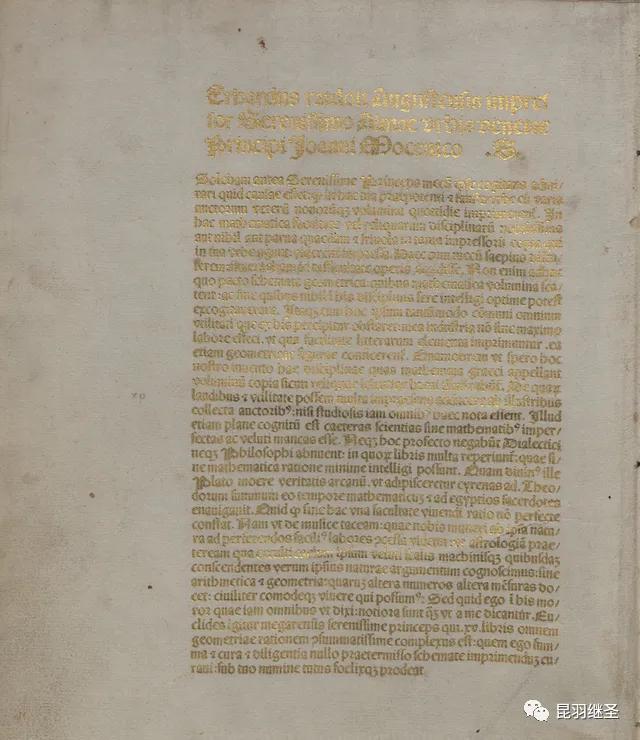 Erhardus ratdolt Augustensis impres
sor Serenissimo Alme vrbis venete
Principi Joanni Mocenico .S.
Solebam antea Serenissime Princeps mecũ ipse cogitans admi/
rari quid cause esset: ꝙ in hac tua prepotenti ⁊ fausta vrbe cũ varia
auctorum veterũ nouorũqꝫ volumina quottidie imprimerent̃. In
hac mathematica facultate vel reliquarum disciplinarũ nobilissima
aut nihil aut parua quaedam ⁊ friuola in tanta impressorũ copia qui
in tua vrbe agunt: viderent̃ impressa. Haec cum mecũ saepius discu/
terem: inueniebam id difficultate operis accidisse. Non enim adhuc
quo pacto schemata geometrica: quibus mathematica volumina sca/
tent: ac sine quibus nihil ĩ his disciplinis fere intelligi optime potest
excogitauerant. Itaqꝫ cum hoc ipsum tantũmodo cõmuni omnium
vtilitati que ex his percipitur obstaret: mea industria nõ sine maximo
labore effeci. vt qua facilitate litterarum elementa imprimuntur. ea
etiam geometrice figure conficerent̃. Quamobrem vt spero hoc
nostro inuento hae disciplinae quas mathemata graeci appellant
voluminũ copia sicuti reliquae scientiae breui illustrabunt̃. De quaꝝ
laudibus ⁊ vtilitate possem multa impraesens adducere ab illustribus
collecta auctoribꝰ: nisi studiosis iam omnibꝰ haec nota essent. Illud
etiam plane cognitũ est caeteras scientias sine mathematibꝰ imper/
fectas ac veluti mancas esse. Neqꝫ hoc profecto negabũt Dialectici
neqꝫ Philosophi abnuent: in quoꝝ libris multa reperiunt̃: quae si/
ne mathematica ratione minime intelligi possunt. Quam diuinꝰ ille
Plato mere veritatis arcanũ. vt adipisceretur cyrenas ad Theo/
dorum summum eo tempore mathematicũ ⁊ ad egyptios sacerdotes
enauigauit. Quid ꝙ sine hac vna facultate viuendi ratio nõ perfecte
constat. Nam vt de musice taceam: quae nobis muneri ab ipsa natu/
ra ad perferendos faciliꝰ labores concessa videtur: vt astrologiã prae/
teream qua exculti coelum ipsum veluti scalis machinisqꝫ quibusdaꝫ
conscendentes verum ipsius naturae argumentum cognoscimus: sine
arithmetica ⁊ geometria: quarũ altera numeros altera mẽsuras do/
cet: ciuiliter comodeqꝫ viuere qui possumꝰ: Sed quid ego ĩ his mo/
ror quae iam omnibus vt dixi: notiora sunt qꝫ̃ vt a me dicantur. Eu/
clides igitur megarensis serenissime princeps qui .xv. libris omnem
geometriae rationem ꝯsummatissime complexus est: quem ego sum/
ma ⁊ cura ⁊ diligentia nullo praetermisso schemate imprimendũ cu/
raui: sub tuo numine tutus foelixqꝫ prodeat.
昆羽继圣